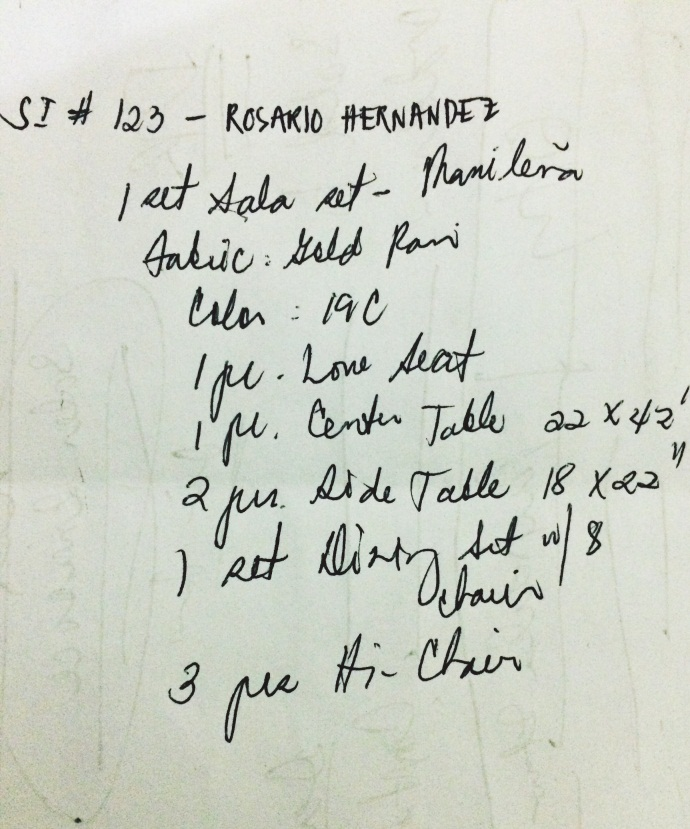 SI # 123 - ROSARIO HERNANDEZ
1 set Sala set - Manileña
Fabric : Gold Rani
Color : 19C
1 pc. Love Seat
1 pc. Center Table 22 X 42"
2 pcs. Side Table 18 X 22"
1 set Dining Set w/ 8
chairs
3 pcs Hi-Chair